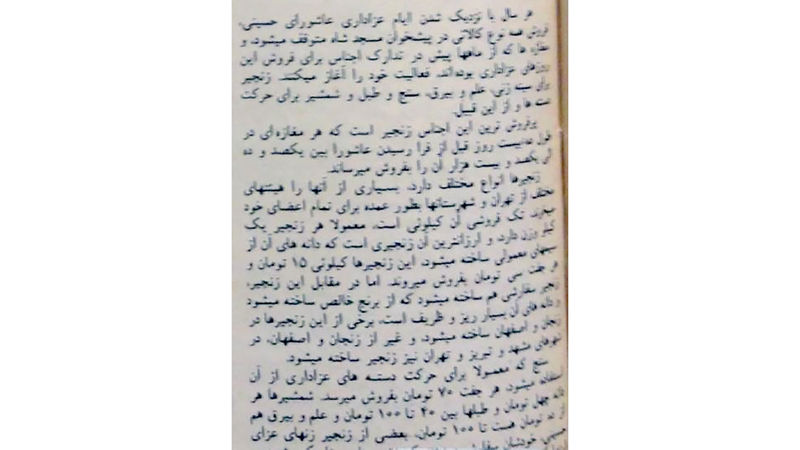 هر سال با نزدیک شدن ایام عزاداری عاشورای حسینی،
فروش همه نوع کالائی در پیشخوان مسجد شاه متوقف میشود، و
مغازه ها که از ماهها پیش در تدارک اجناس برای فروش این
روزهای عزاداری بوده‌اند، فعالیت خود را آغاز میکنند. زنجیر
برای سینه زنی، علم و بیرق، سنج و طبل و شمشیر برای حرکت
دسته ها و از این قبیل.
پرفروش ترین این اجناس زنجیر است که هر مغازه‌ای در
طول ده‌بیست روز قبل از فرا رسیدن عاشورا بین یکصد و ده
الی یکصد و بیست هزار آن را بفروش میرساند.
زنجیرها انواع مختلف دارد، بسیاری از آنها را هیئتهای
مختلف از تهران و شهرستانها بطور عمده برای تمام اعضای خود
میخرند. تک فروشی آن کیلوئی است، معمولا هر زنجیر یک
کیلو وزن دارد، و ارزانترین آن زنجیری است که دانه های آن از
سیمهای معمولی ساخته میشود، این زنجیرها کیلوئی ۱۵ تومان و
هر جفت سی تومان بفروش میروند. اما در مقابل این زنجیر،
زنجیر سفارشی هم ساخته میشود که از برنج خالص ساخته میشود
و دانه های آن بسیار ریز و ظریف است، برخی از این زنجیرها در
زنجان و اصفهان ساخته میشود، و غیر از زنجان و اصفهان، در
شهرهای مشهد و تبریز و تهران نیز زنجیر ساخته میشود.
سنج که معمولا برای حرکت دسته های عزاداری از آن
استفاده میشود، هر جفت ۷۰ تومان بفروش میرسد. شمشیرها هر
دانه چهل تومان و طبلها بین ۴۰ تا ۱۰۰ تومان و علم و بیرق هم
از ده تومان هست تا ۱۰۰ تومان، بعضی از زنجیر زنهای عزای
حسینی، خودشان